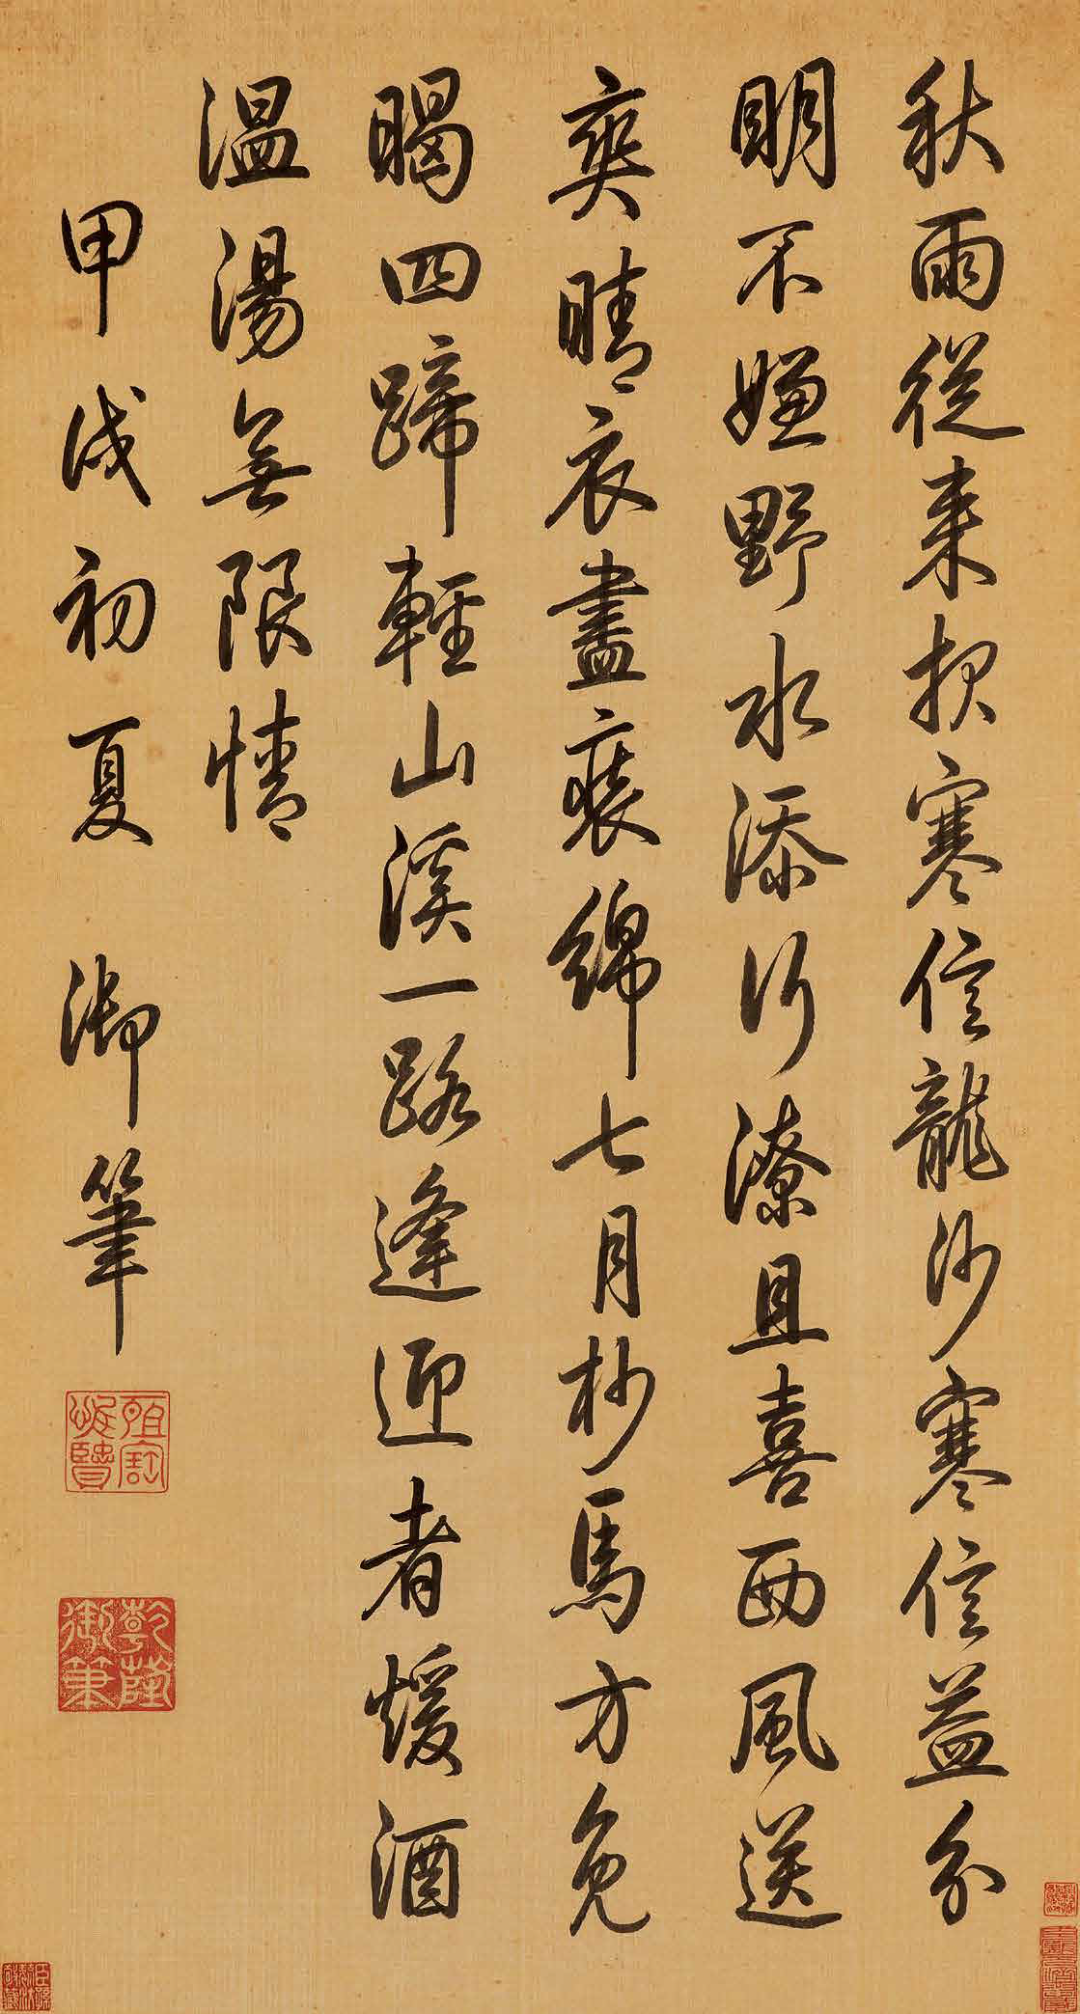 秋雨從来报寒信龍沙寒信益分
明不嫌野水添行潦且喜西風送
爽晴衣盡裘綿七月杪馬方免
暍四蹄輕山溪一路逢迎者煖酒
温湯無限情
甲戌初夏 御筆
所寶惟賢
乾隆御筆